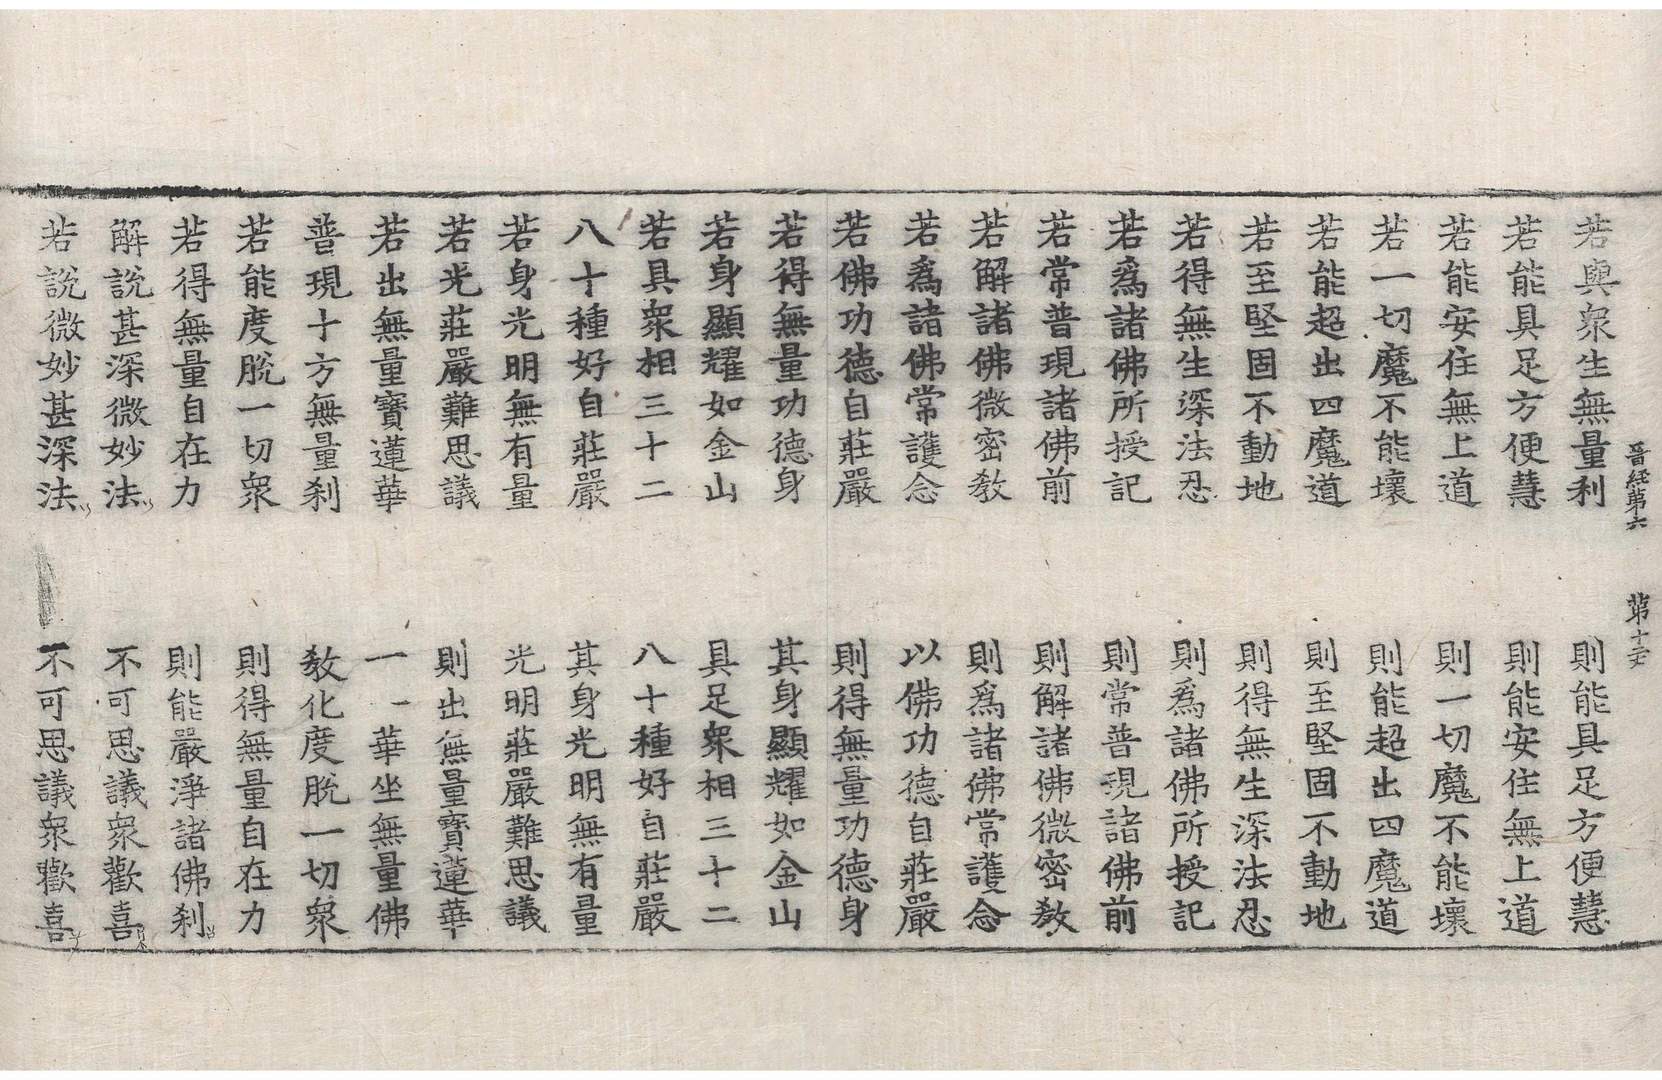 晋経第六 第十
若與衆生無量利 則能具足方便慧
若能具足方便慧 則能安住無上道
若能安住無上道 則一切魔不能壞
若一切魔不能壞 則能超出四魔道
若能超出四魔道 則至堅固不動地
若至堅固不動地 則得無生深法忍
若得無生深法忍 則爲諸佛所授記
若爲諸佛所授記 則常普現諸佛前
若常普現諸佛前 則解諸佛微密教
若解諸佛微密教 則爲諸佛常護念
若爲諸佛常護念 以佛功德自莊嚴
若佛功德自莊嚴 則得無量功德身
若得無量功德身 其身顯耀如金山
若身顯耀如金山 具足衆相三十二
若具衆相三十二 八十種好自莊嚴
八十種好自莊嚴 其身光明無有量
若身光明無有量 光明莊嚴難思議
若光莊嚴難思議 則出無量寶蓮華
若出無量寶蓮華 一一華坐無量佛
普現十方無量刹 教化度脫一切衆
若能度脫一切衆 則得無量自在力
若得無量自在力 則能嚴淨諸佛刹
解說甚深微妙法 不可思議衆歡喜
若說微妙甚深法 不可思議衆歡喜